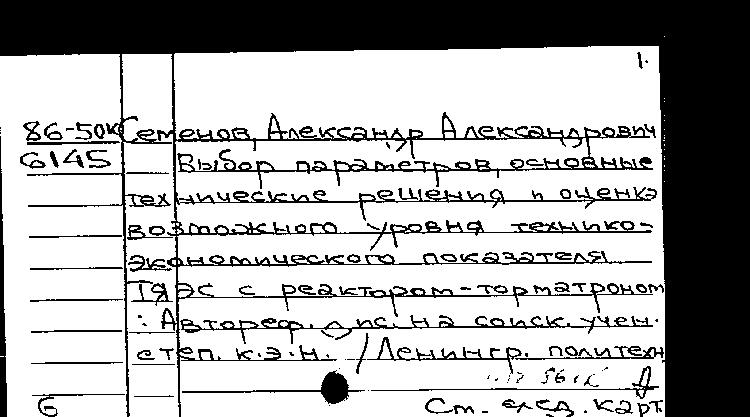 1.
86-50к Семенов, Александр Александрович
6145 Выбор параметров, основные
технические решения и оценка
возможного уровня технико-
экономического показателя
ТЯЭС с реактором-торматроном
: Автореф. дис. на соиск. учен.
степ. к.э.н. / Ленингр. политехн
6 См. след. карт